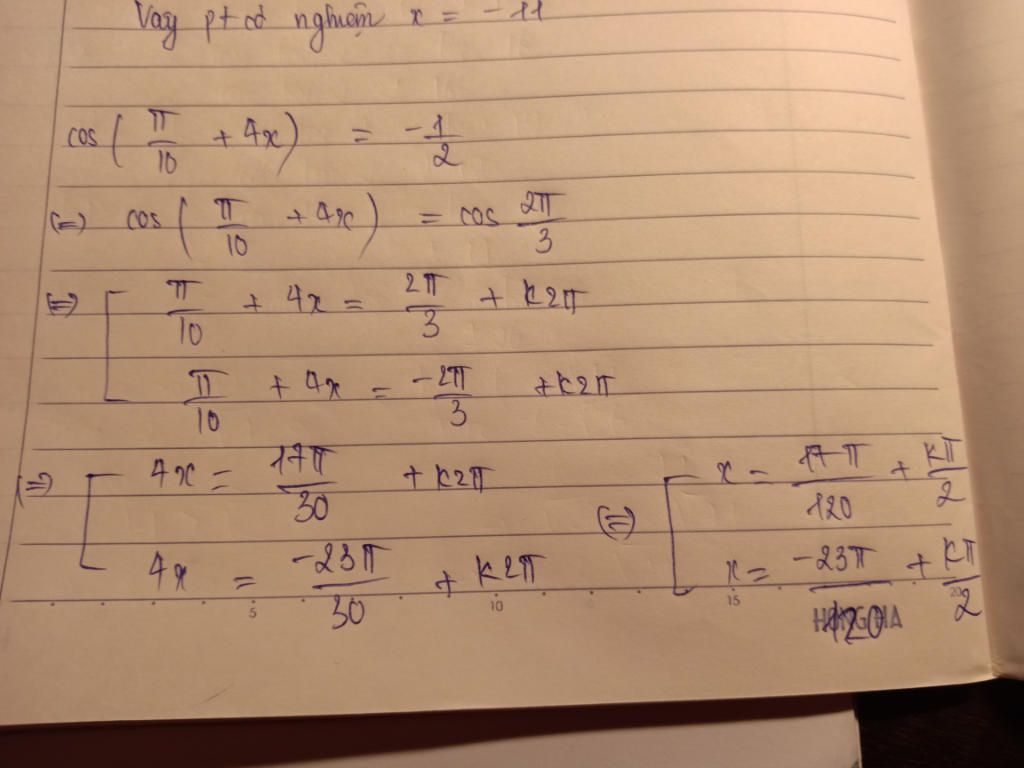 Vay pt có nghiệm x = -11
cos(π/10 + 4x) = -1/2
(=) cos(π/10 + 4x) = cos 2π/3
(=) [ π/10 + 4x = 2π/3 + k2π
π/10 + 4x = -2π/3 + k2π
(=) [ 4x = 17π/30 + k2π
4x = -23π/30 + k2π
(=) [ x = 17π/120 + kπ/2
x = -23π/120 + kπ/2
5 10 15 20